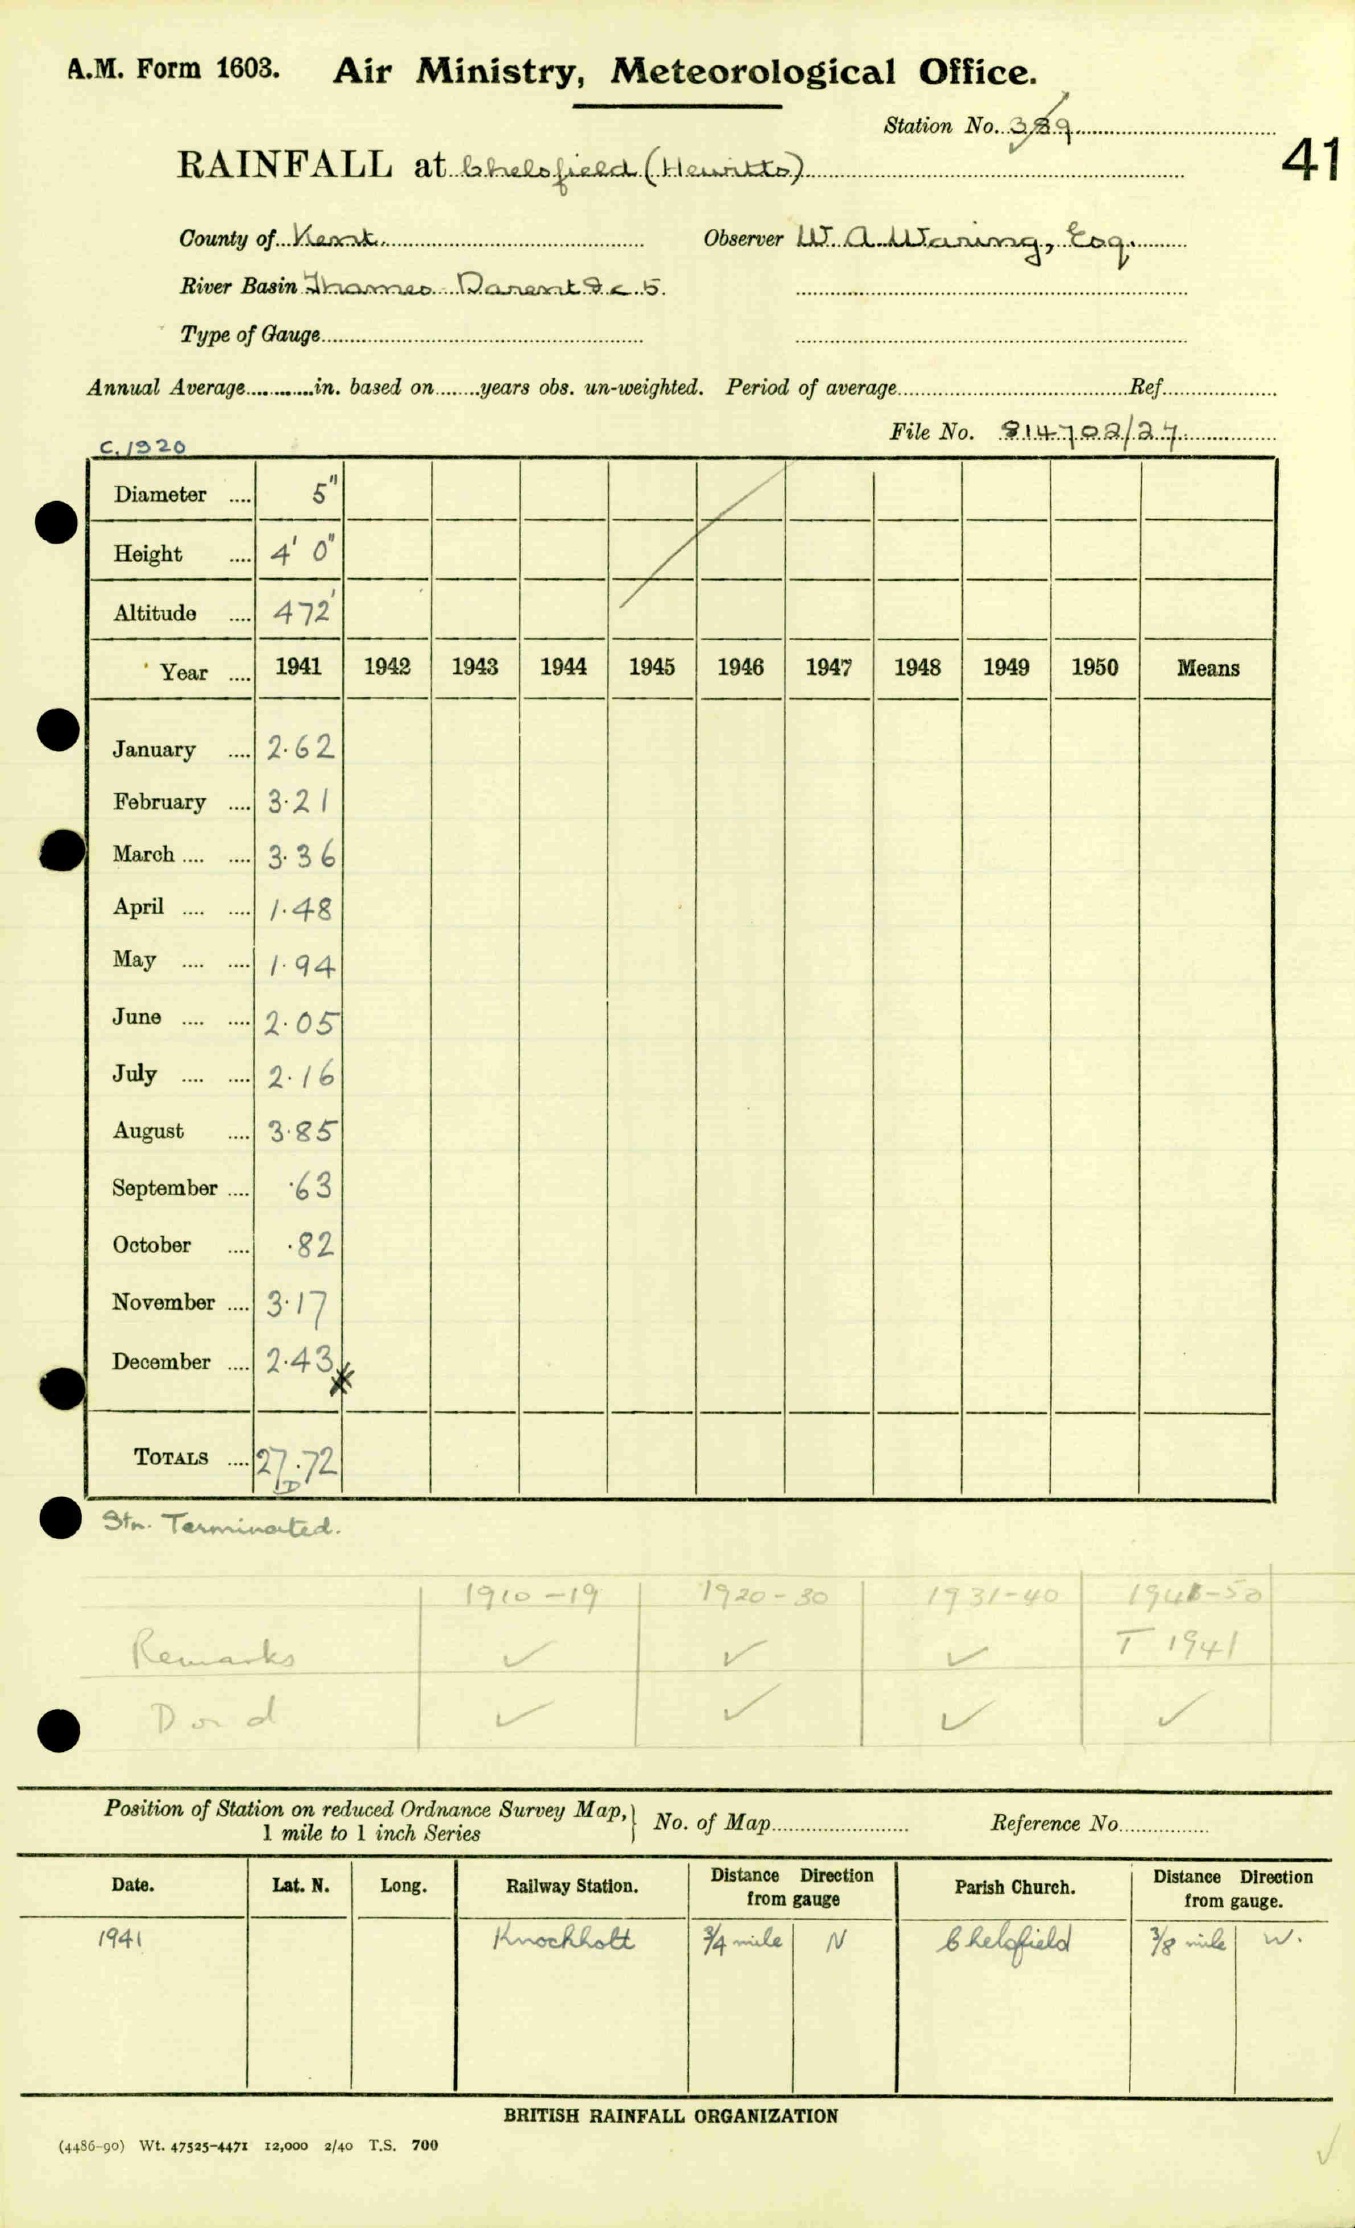 A.M. Form 1603. Air Ministry, Meteorological Office.
Station No. 389
41
RAINFALL at Chelsfield (Hewitts)
County of Kent. Observer W. A. Waring, Esq.
River Basin Thames Darent &c 5.
Type of Gauge
Annual Average in. based on years obs. un-weighted. Period of average Ref.
File No. 814702/27.
C.1920
Diameter .... 5"
Height .... 4' 0"
Altitude .... 472'
Year .... 1941 1942 1943 1944 1945 1946 1947 1948 1949 1950 Means
January .... 2.62
February .... 3.21
March .... .... 3.36
April .... .... 1.48
May .... .... 1.94
June .... .... 2.05
July .... .... 2.16
August .... 3.85
September .... .63
October .... .82
November .... 3.17
December .... 2.43
TOTALS .... 27.72
D
Stn. Terminated.
1910-19 1920-30 1931-40 1941-50
Remarks ✓ ✓ ✓ T 1941
D and ✓ ✓ ✓ ✓
Position of Station on reduced Ordnance Survey Map, 1 mile to 1 inch Series } No. of Map Reference No.
Date. Lat. N. Long. Railway Station. Distance Direction from gauge Parish Church. Distance Direction from gauge.
1941 Knockholt 3/4 mile N Chelsfield 3/8 mile W.
BRITISH RAINFALL ORGANIZATION
(4486-90) Wt. 47525-4471 12,000 2/40 T.S. 700
✓